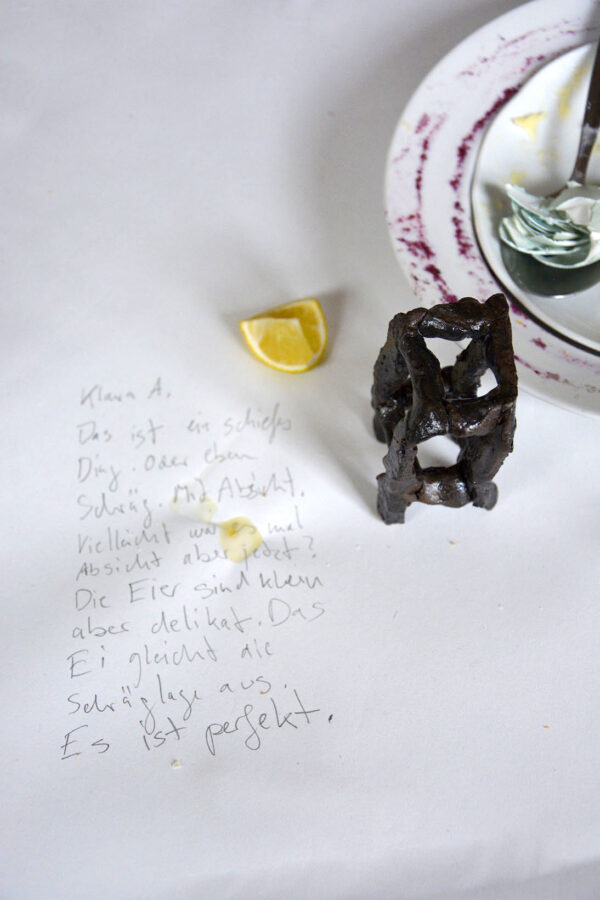 Klara A.
Das ist ein schiefes
Ding. Oder eben
Schräg. Mit Absicht.
Vielleicht war es mal
Absicht aber jetzt?
Die Eier sind klein
aber delikat. Das
Ei gleicht die
Schräglage aus.
Es ist perfekt.